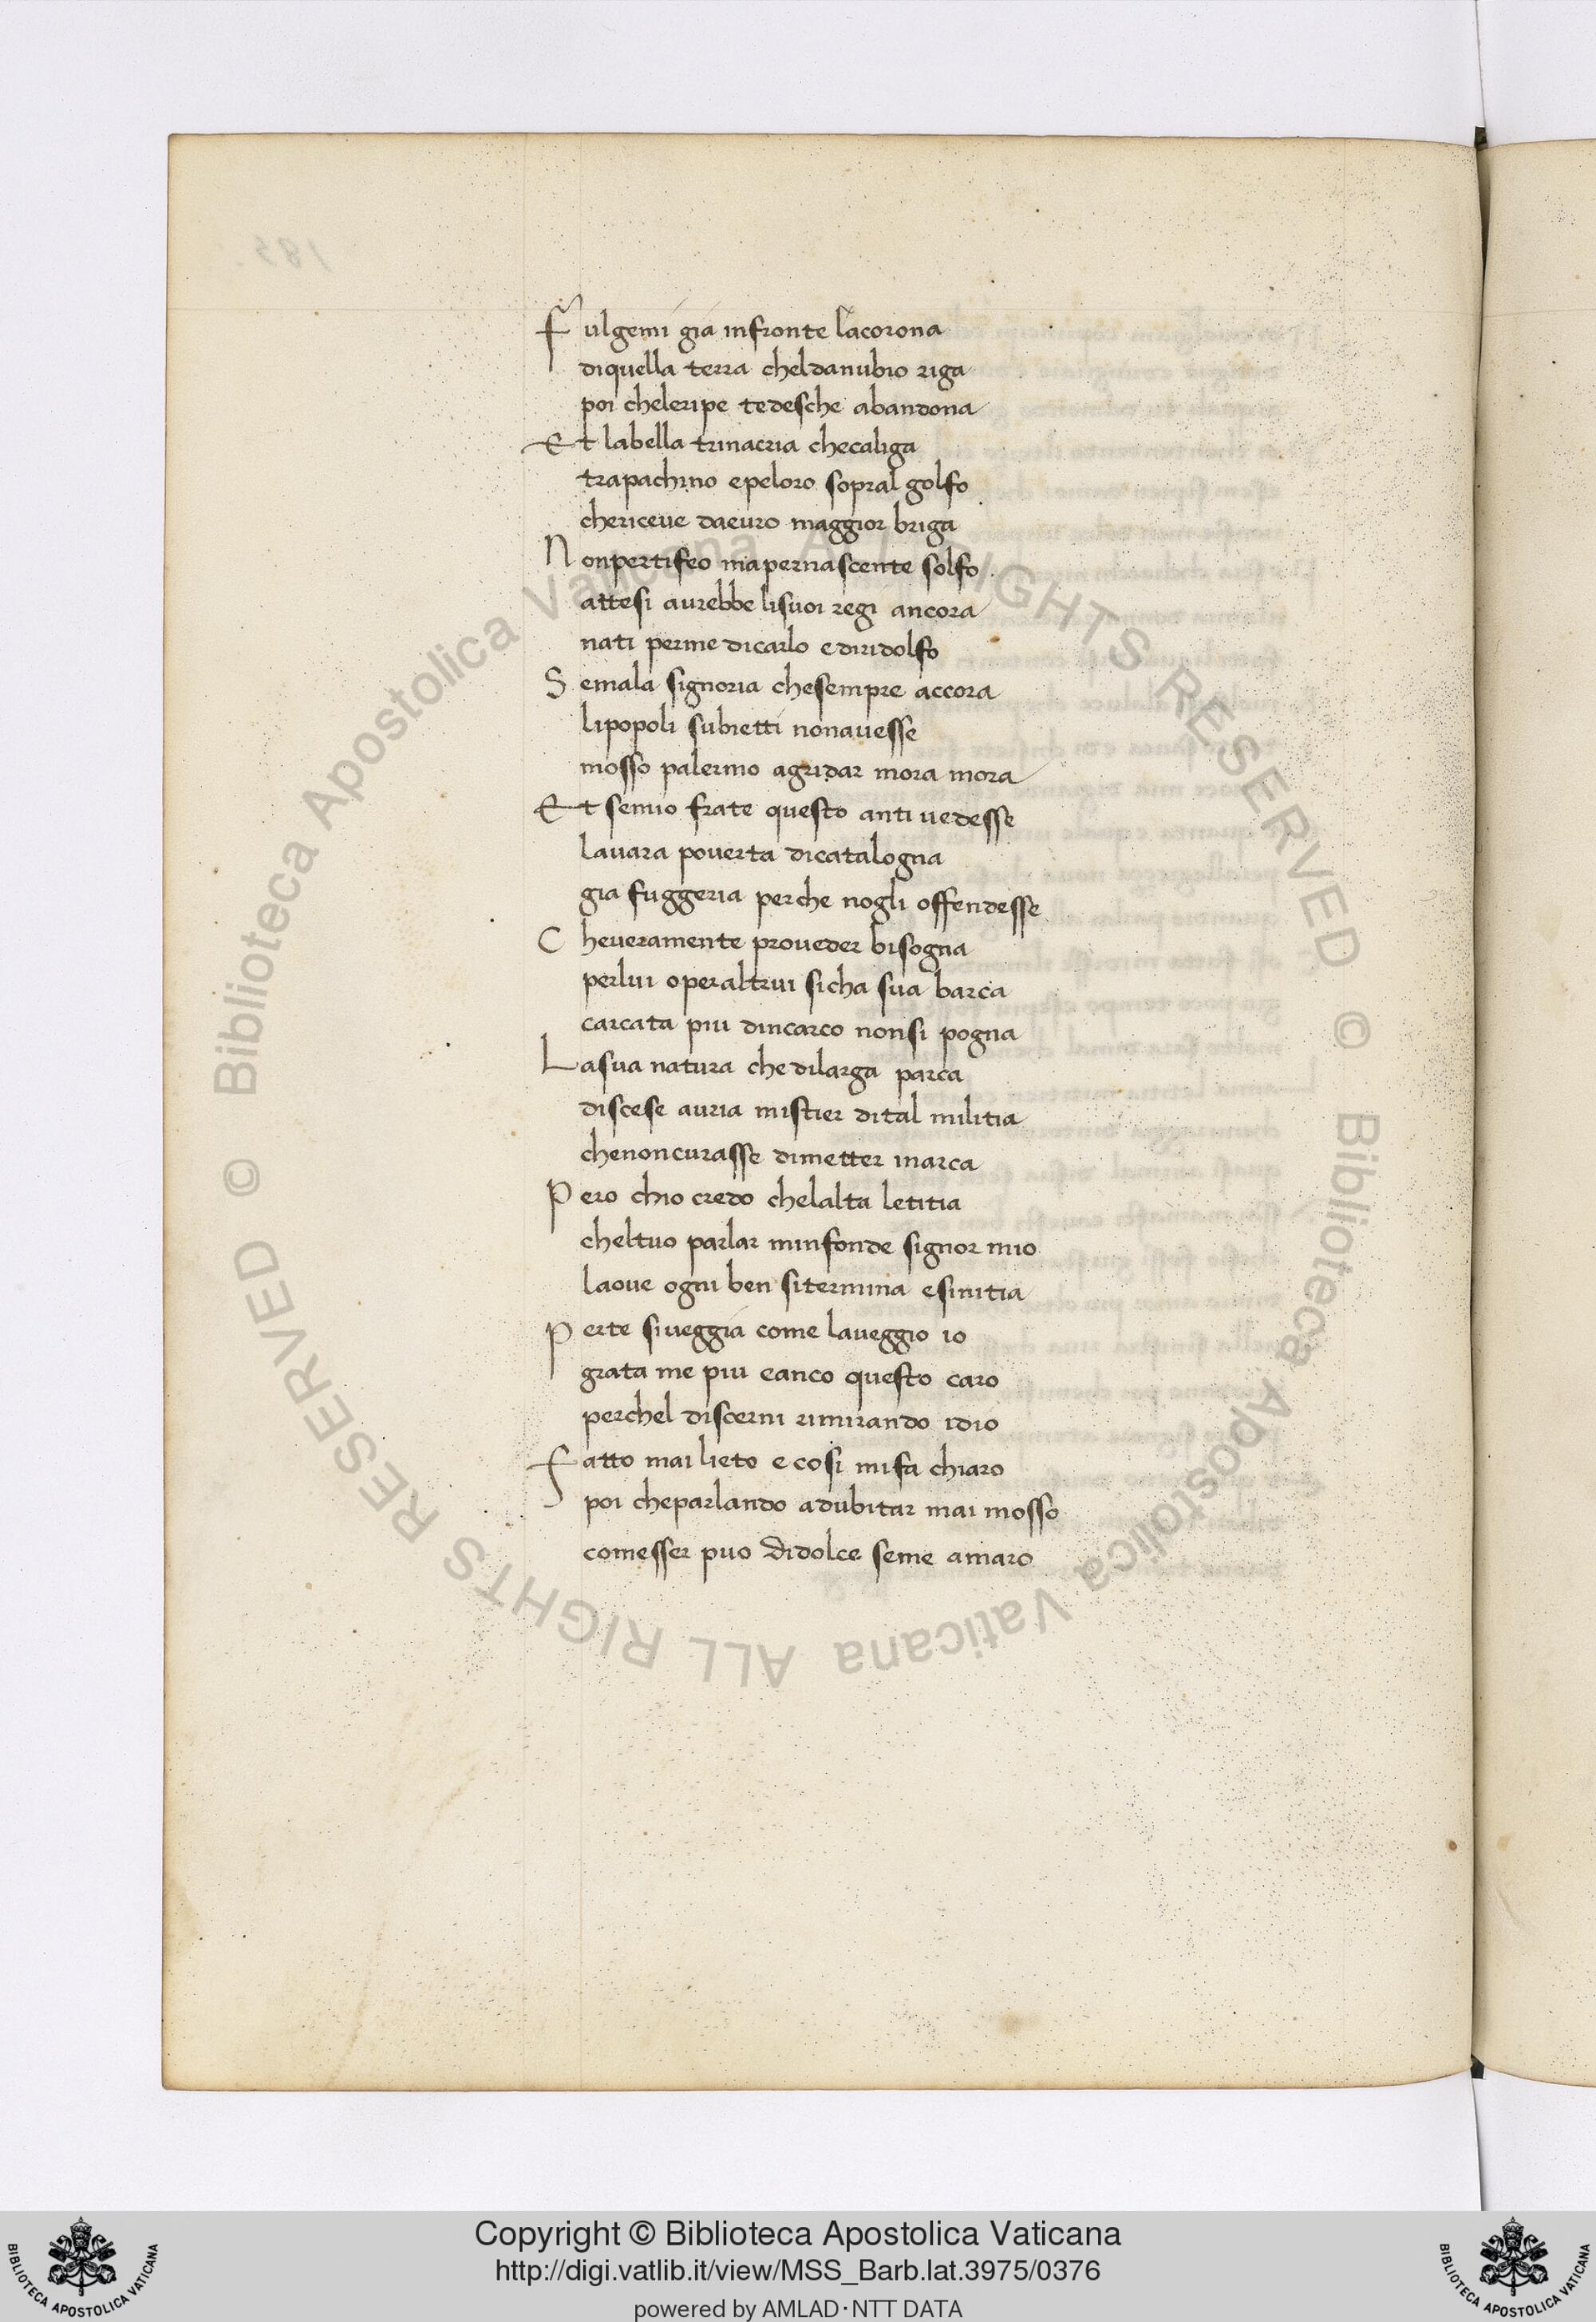 Fulgemi gia infronte lacorona
diquella terra cheldanubio riga
poi cheleripe tedesche abandona
Et labella trinacria checaliga
trapachino epeloro sopral golfo
chericeve daeuro maggior briga
Nonpertifeo mapernascente solfo
attesi aurebbe lisuoi regi ancora
nati perme dicarlo ediridolfo
Semala signoria chesempre accora
lipopoli subietti nonavesse
mosso palermo agridar mora mora
Et semio frate questo anti vedesse
lavara poverta dicatalogna
gia fuggeria perche nogli offendesse
Cheveramente proveder bisogna
perlui operaltrui sicha sua barca
carcata piu dincarco nonsi pogna
Lasua natura chedilarga parca
discese auria mistier dital militia
chenoncurasse dimetter inarca
Pero chio credo chelalta letitia
cheltuo parlar minfonde signor mio
laove ogni ben sitermina esinitia
Perte siveggia come laveggio io
grata me piu eanco questo caro
perchel discerni rimirando idio
Fatto mai lieto ecosi mifa chiaro
poi cheparlando adubitar mai mosso
comesser puo didolce seme amaro
© Biblioteca Apostolica Vaticana ALL RIGHTS RESERVED © Biblioteca Apostolica Vaticana ALL RIGHTS RESERVED
Copyright © Biblioteca Apostolica Vaticana
http://digi.vatlib.it/view/MSS_Barb.lat.3975/0376
powered by AMLAD·NTT DATA
BIBLIOTECA APOSTOLICA VATICANA
BIBLIOTECA APOSTOLICA VATICANA